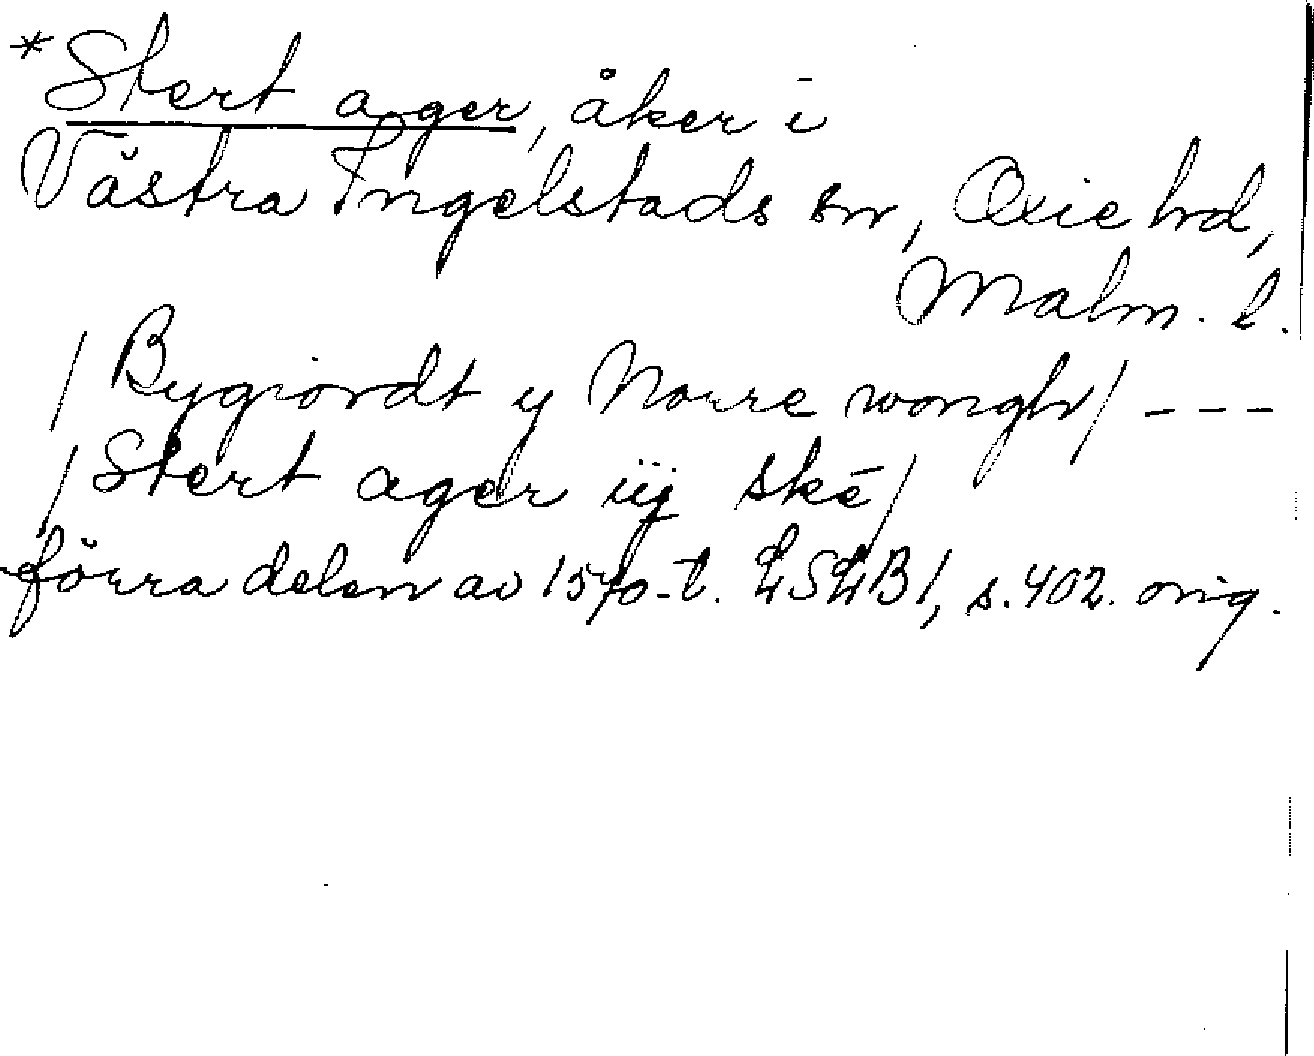 *Stert ager, åker i
Västra Ingelstads sn, Oxie hd,
Malm. l.
/Bygiordt y Norre wongh/ - - -
/Stert ager iij skē/
förra delen av 1570-t. LSLB1, s. 402. orig.